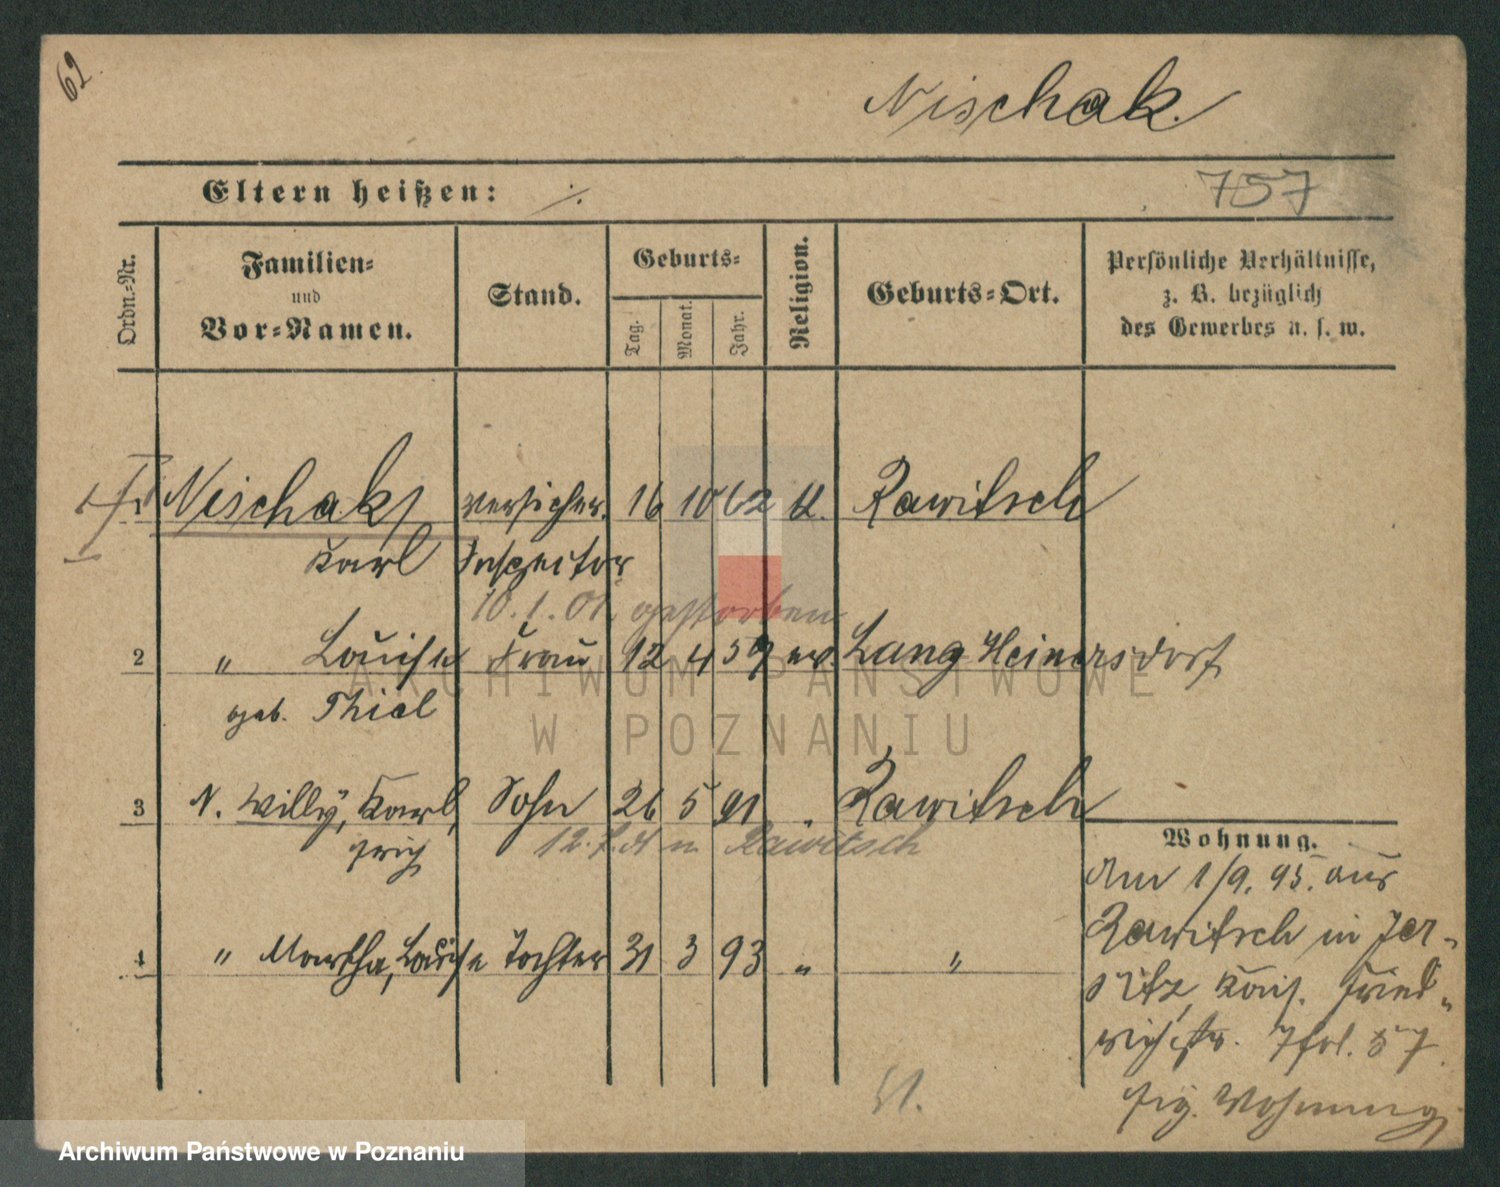 62.
Nischak.
Eltern heißen: ./.
757
Ordn.-Nr.
Familien-
und
Vor-Namen.
Stand.
Geburts-
Tag.
Monat.
Jahr.
Religion.
Geburts-Ort.
Persönliche Verhältnisse,
z. B. bezüglich
des Gewerbes u. s. w.
1 Nischak, Versicher. 16 10 62 k. Rawitsch
Karl Inspector
10.1.01. gestorben
2 " Louise Frau 12 4 59 ev. Lang Heinersdorf
geb. Thiel
ARCHIWUM PAŃSTWOWE
W POZNANIU
3 N. Willy, Karl, Sohn 26 5 91 " Rawitsch
Rawitsch
4 " Martha, Louise Tochter 31 3 93 " "
Wohnung.
Am 1/9. 95. aus
Rawitsch in Jer-
sitz, Kais. Fried-
richstr. 57
eig. Wohnung
Archiwum Państwowe w Poznaniu